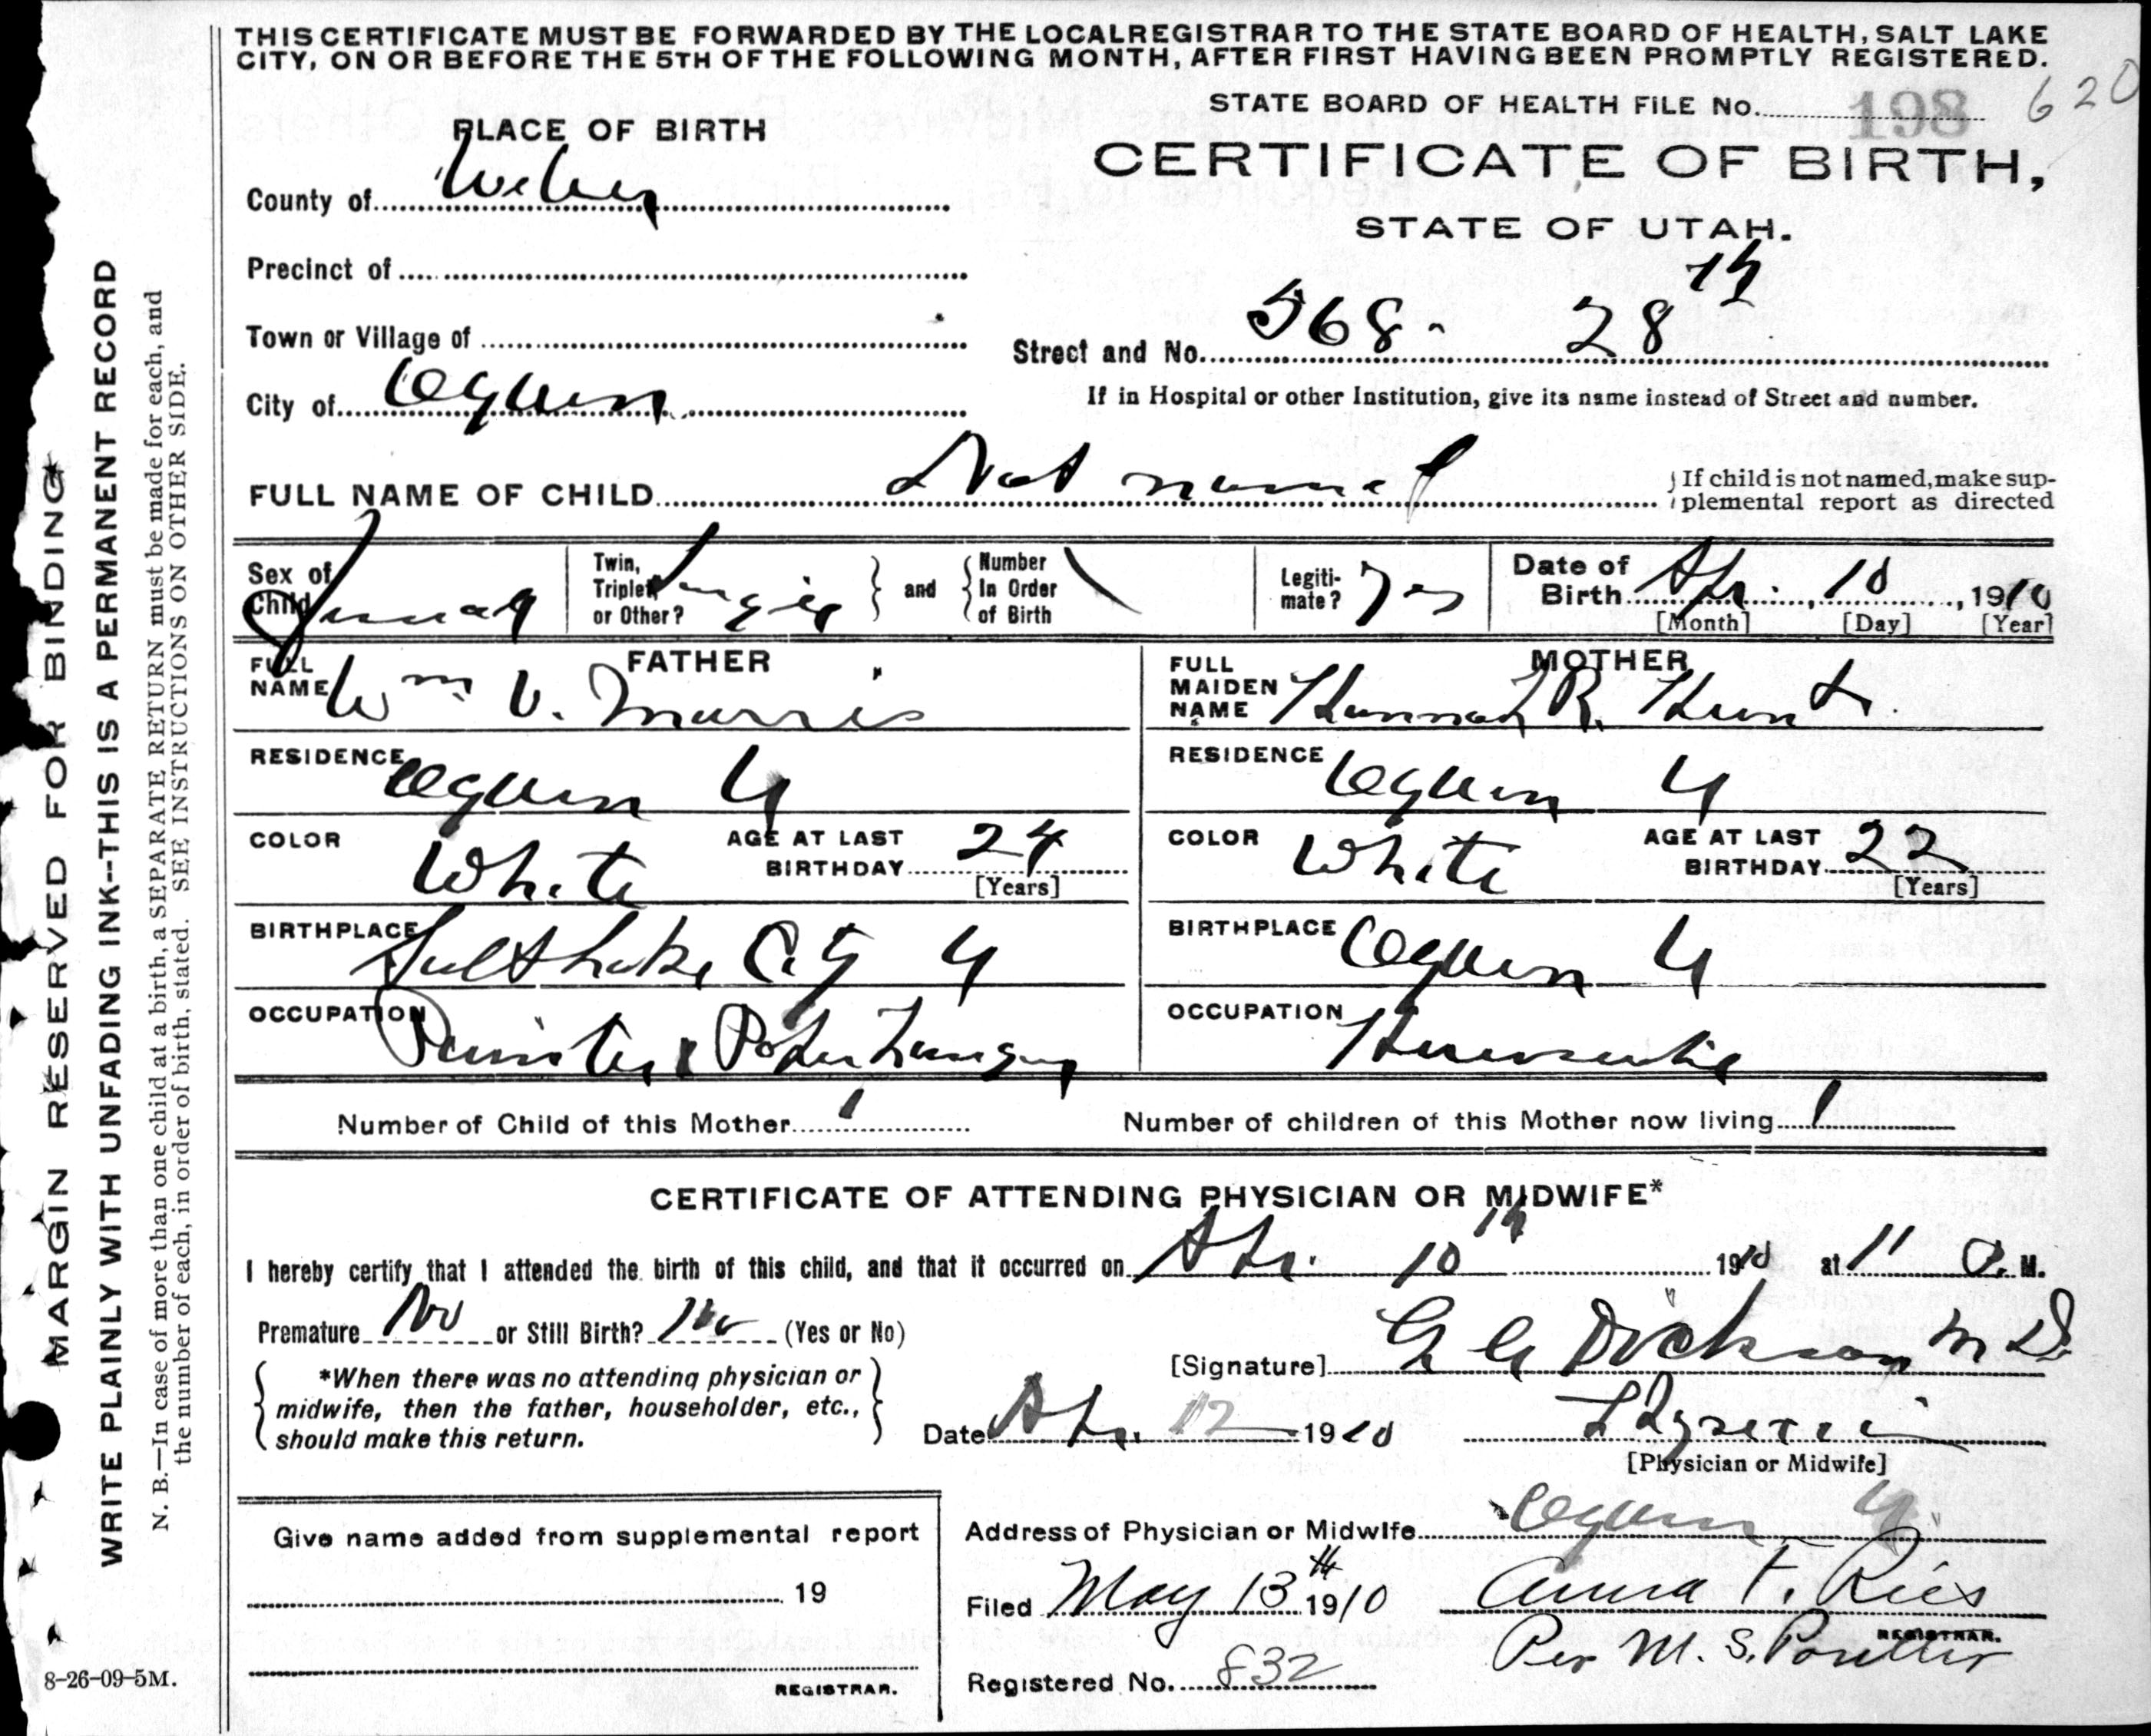 THIS CERTIFICATE MUST BE FORWARDED BY THE LOCAL REGISTRAR TO THE STATE BOARD OF HEALTH, SALT LAKE
CITY, ON OR BEFORE THE 5TH OF THE FOLLOWING MONTH, AFTER FIRST HAVING BEEN PROMPTLY REGISTERED.
STATE BOARD OF HEALTH FILE No. 198 620
PLACE OF BIRTH
CERTIFICATE OF BIRTH,
STATE OF UTAH.
County of Weber
Precinct of
Town or Village of
Street and No. 568 - 28th
City of Ogden
If in Hospital or other Institution, give its name instead of Street and number.
FULL NAME OF CHILD Not named
If child is not named, make sup-
plemental report as directed
Sex of Child
Twin, Triplet or Other? Single
and
Number In Order of Birth
Legiti-mate? Yes
Date of Birth Apr. 10, 1910
[Month] [Day] [Year]
FATHER
FULL NAME Wm V. Morris
MOTHER
FULL MAIDEN NAME Hannah R. Hunt
RESIDENCE Ogden U
RESIDENCE Ogden U
COLOR White
AGE AT LAST BIRTHDAY 24
[Years]
COLOR White
AGE AT LAST BIRTHDAY 22
[Years]
BIRTHPLACE Salt Lake City U
BIRTHPLACE Ogden U
OCCUPATION Painter & Paper Hanger
OCCUPATION Housewife
Number of Child of this Mother 1
Number of children of this Mother now living 1
CERTIFICATE OF ATTENDING PHYSICIAN OR MIDWIFE*
I hereby certify that I attended the birth of this child, and that it occurred on Apr. 10th 1910 at 11 P. M.
Premature No or Still Birth? No (Yes or No)
[Signature] Dickson M D
*When there was no attending physician or
midwife, then the father, householder, etc.,
should make this return.
Date Apr. 12 1910
Physician
[Physician or Midwife]
Give name added from supplemental report
19
REGISTRAR.
Address of Physician or Midwife Ogden U
Filed May 13th 1910 Anna F. Ries
REGISTRAR.
Per M. S.
Registered No. 832
8-26-09-5M.
MARGIN RESERVED FOR BINDING
WRITE PLAINLY WITH UNFADING INK--THIS IS A PERMANENT RECORD
N. B.—In case of more than one child at a birth, a SEPARATE RETURN must be made for each, and
the number of each, in order of birth, stated. SEE INSTRUCTIONS ON OTHER SIDE.